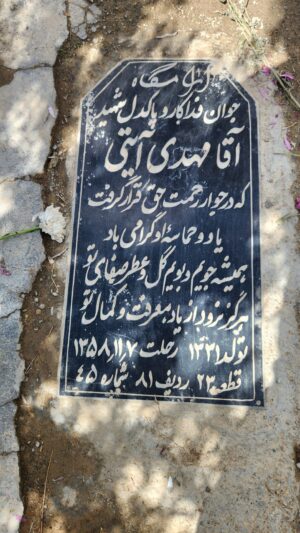 آرامگاه
جوان فداکار و پاکدل شهید
آقا مهدی
که در جوار رحمت حق قرار گرفت
یاد و حماسه او گرامی باد
همیشه جویم و بویم گل و عطر صفای تو
هرگز نرود از یاد معرفت و کمال تو
تولد ۱۳۳۱ رحلت ۱۳۵۸٫۱۱٫۷
قطعه ۲۳ ردیف ۸۱ شماره ۴۵